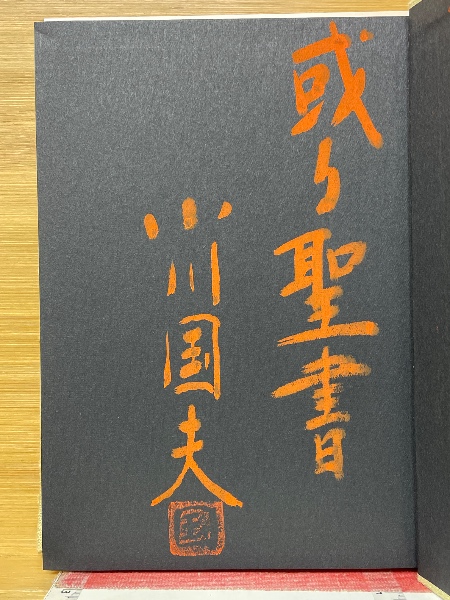 或る聖書
小川国夫